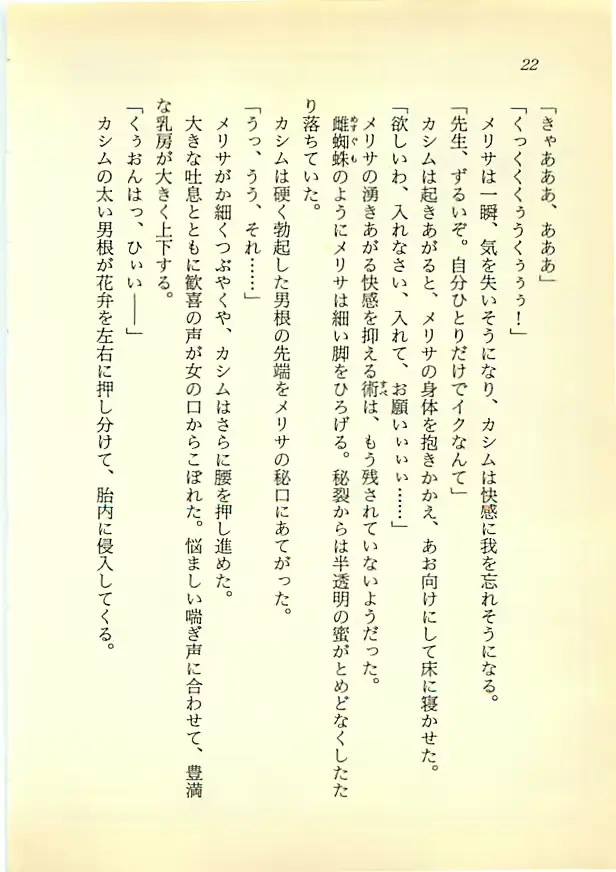 22
「きゃあああ、あああ」
「くっくくくぅうくぅぅぅ！」
メリサは一瞬、気を失いそうになり、カシムは快感に我を忘れそうになる。
「先生、ずるいぞ。自分ひとりだけでイクなんて」
カシムは起きあがると、メリサの身体を抱きかかえ、あお向けにして床に寝かせた。
「欲しいわ、入れなさい、入れて、お願いぃぃぃ……」
メリサの湧きあがる快感を抑える術は、もう残されていないようだった。
雌蜘蛛のようにメリサは細い脚をひろげる。秘裂からは半透明の蜜がとめどなくしたた
り落ちていた。
カシムは硬く勃起した男根の先端をメリサの秘口にあてがった。
「うっ、うう、それ……」
メリサがか細くつぶやくや、カシムはさらに腰を押し進めた。
大きな吐息とともに歓喜の声が女の口からこぼれた。悩ましい喘ぎ声に合わせて、豊満
な乳房が大きく上下する。
「くぅおんはっ、ひぃい――」
カシムの太い男根が花弁を左右に押し分けて、胎内に侵入してくる。